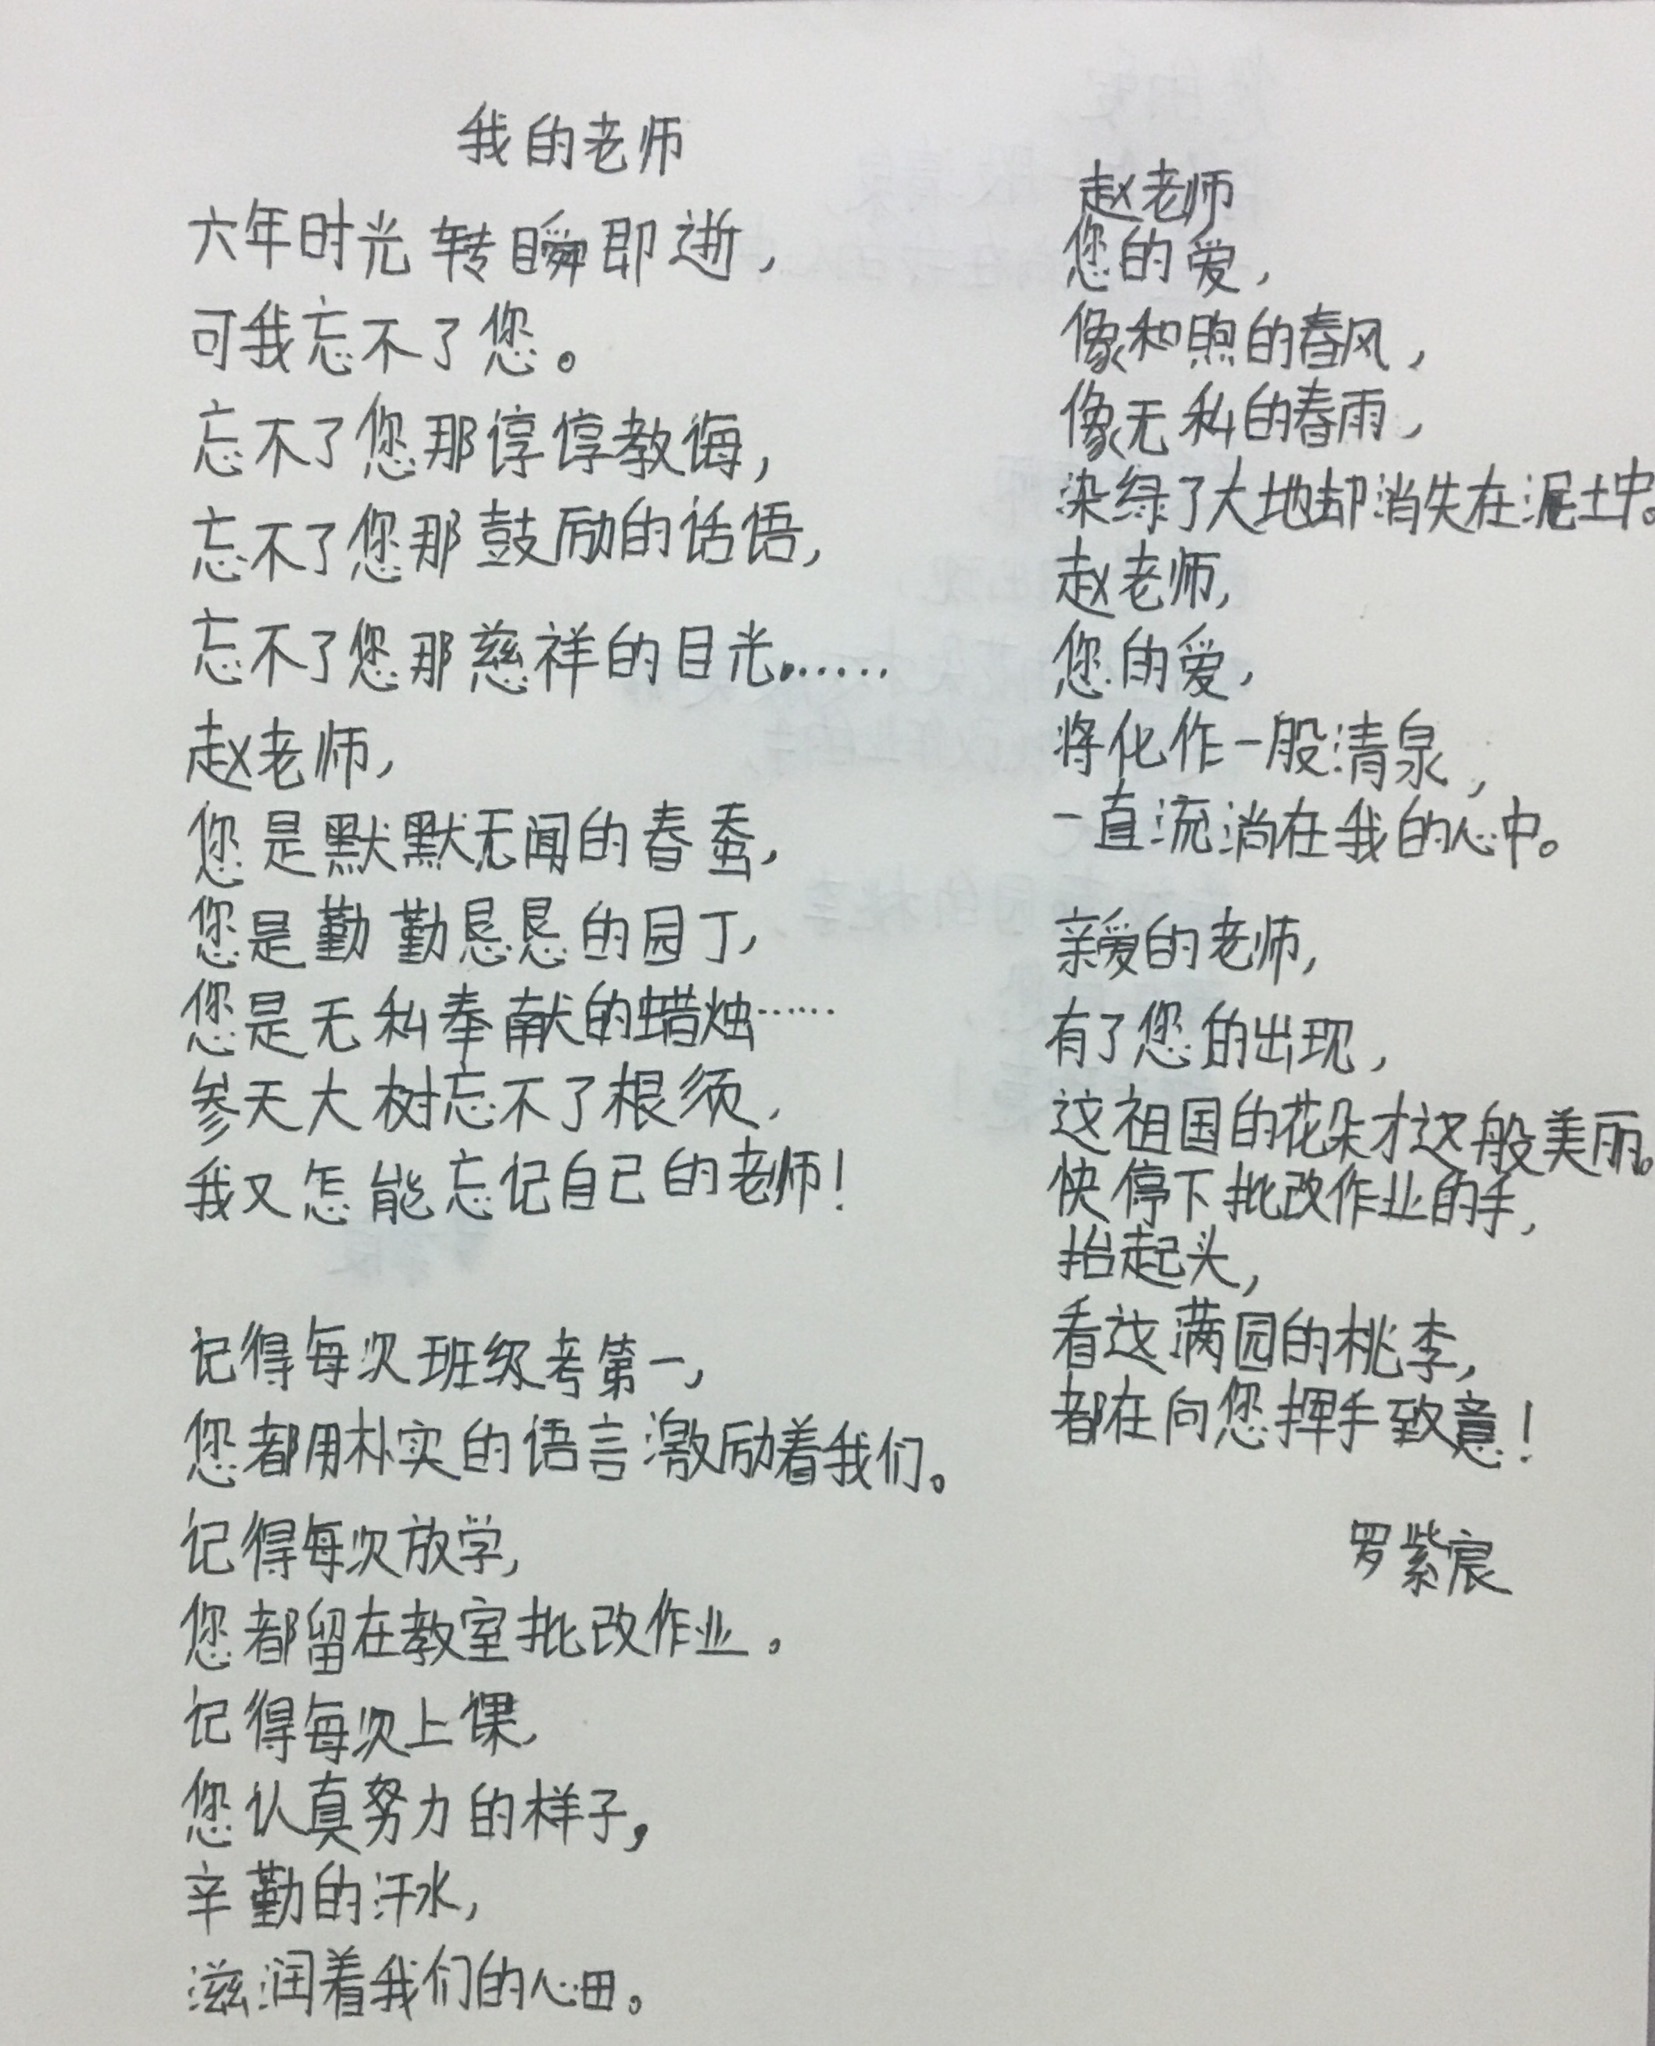 我的老师
六年时光转瞬即逝，
可我忘不了您。
忘不了您那谆谆教诲，
忘不了您那鼓励的话语，
忘不了您那慈祥的目光……
赵老师，
您是默默无闻的春蚕，
您是勤勤恳恳的园丁，
您是无私奉献的蜡烛……
参天大树忘不了根须，
我又怎能忘记自己的老师！
记得每次班级考第一，
您都用朴实的语言激励着我们。
记得每次放学，
您都留在教室批改作业。
记得每次上课，
您认真努力的样子，
辛勤的汗水，
滋润着我们的心田。
赵老师
您的爱，
像和煦的春风，
像无私的春雨，
染绿了大地却消失在泥土中。
赵老师，
您的爱，
将化作一股清泉，
一直流淌在我的心中。
亲爱的老师，
有了您的出现，
这祖国的花朵才这般美丽。
快停下批改作业的手，
抬起头，
看这满园的桃李，
都在向您挥手致意！
罗紫宸